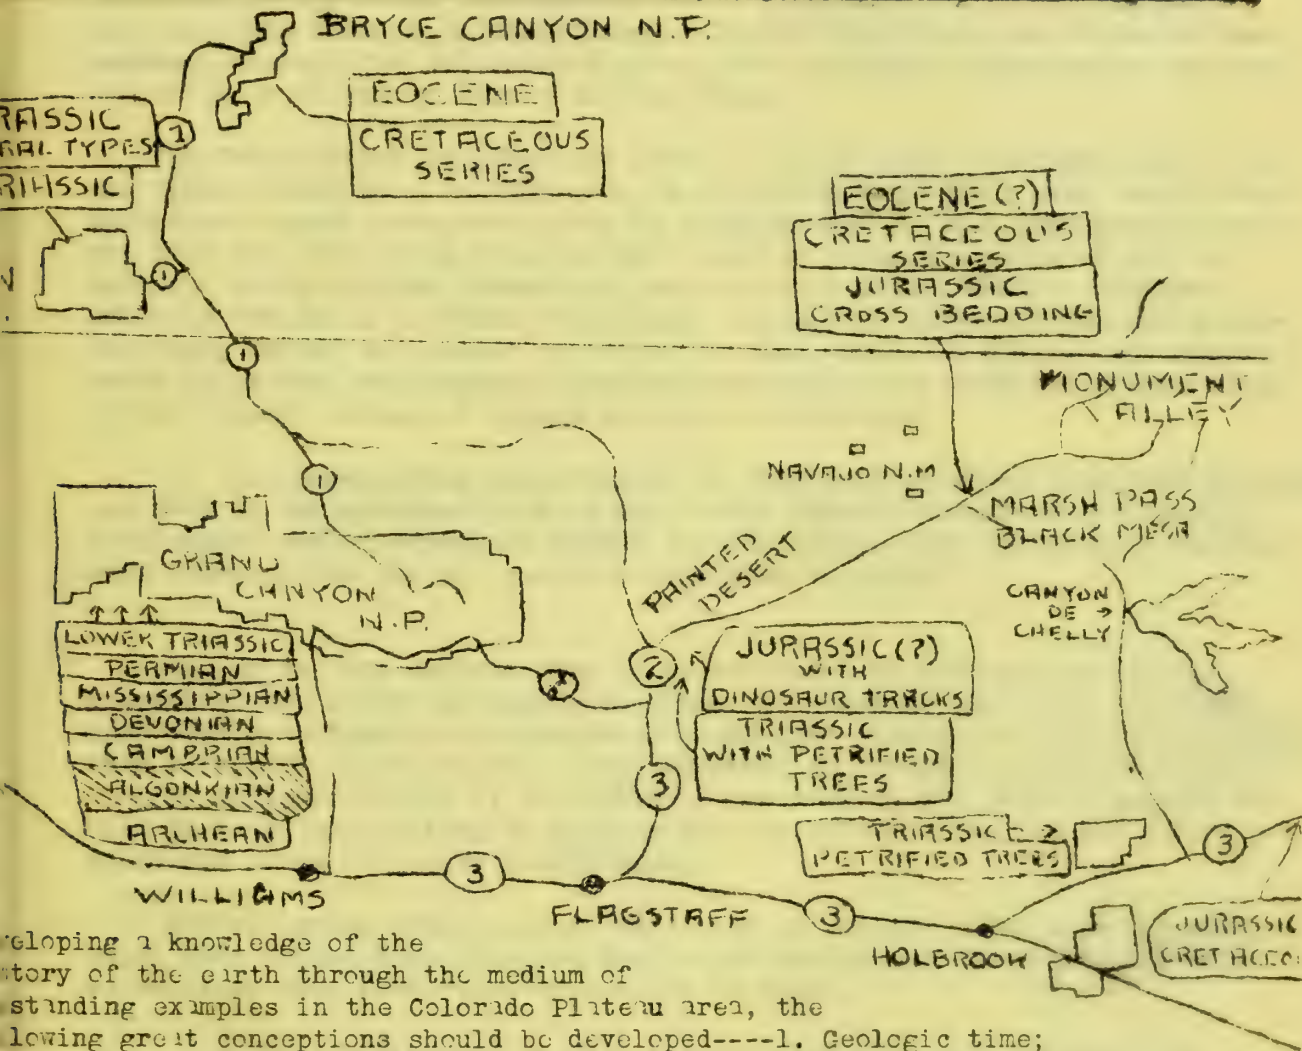 BRYCE CANYON N.P.
EOCENE
CRETACEOUS
SERIES
RASSIC
TYPES
RIASSIC
1
1
1
1
EOCENE (?)
CRETACEOUS
SERIES
JURASSIC
CROSS BEDDING
MONUMENT
VALLEY
NAVAJO N.M
MARSH PASS
BLACK MESA
PAINTED
DESERT
CANYON
DE →
CHELLY
GRAND
CANYON
N.P.
LOWER TRIASSIC
PERMIAN
MISSISSIPPIAN
DEVONIAN
CAMBRIAN
ALGONKIAN
ARCHEAN
2
JURASSIC (?)
WITH
DINOSAUR TRACKS
TRIASSIC
WITH PETRIFIED
TREES
3
TRIASSIC
PETRIFIED TREES
3
3
3
WILLIAMS
FLAGSTAFF
HOLBROOK
JURASSIC
CRETACEO
eloping a knowledge of the
tory of the earth through the medium of
standing examples in the Colorado Plateau area, the
lowing great conceptions should be developed----1. Geologic time;